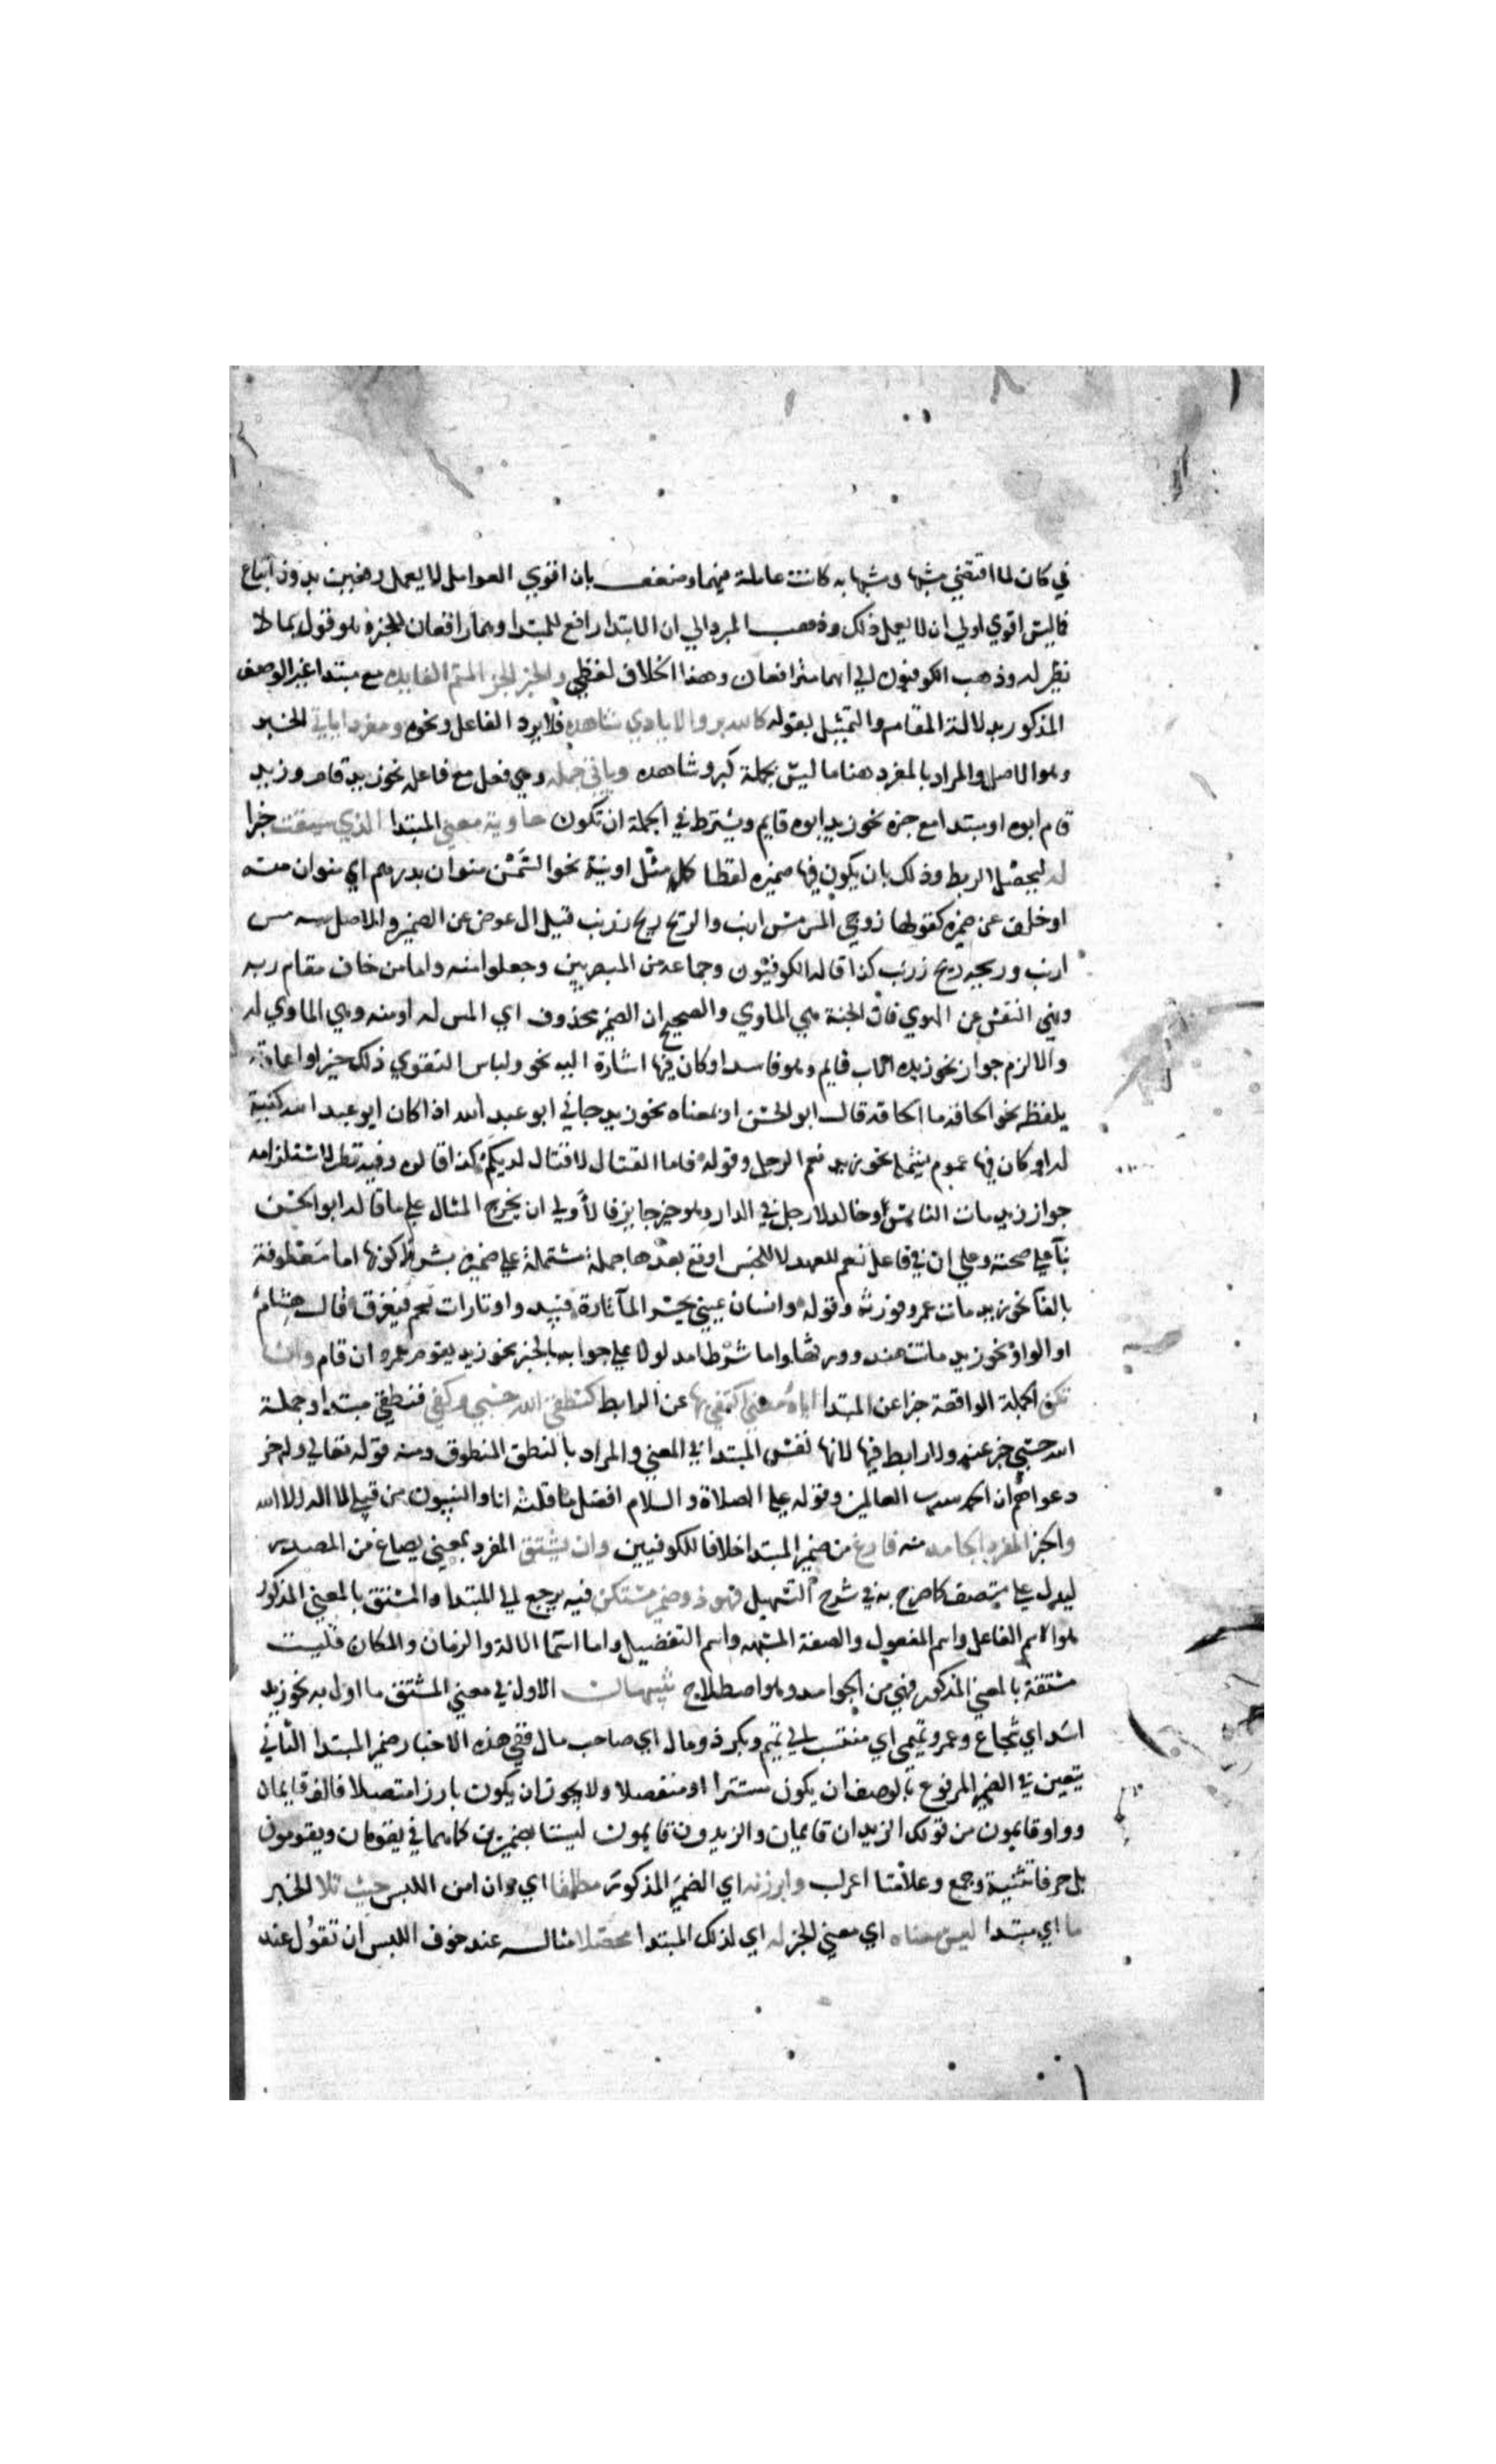 في كان لما اقتضي مشبها ومشبها به كانت عاملة فيهما وضعف بان اقوي العوامل لا يعمل رفعين بدون اتباع
فاليس اقوي اولي ان لا يعمل ذلك وذهب المبرد الي ان الابتدا رافع للمبتدا وهما رافعان للخبر وهو قول بما لا
نظير له وذهب الكوفيون الي انهما مترافعان وهذا الخلاف لفظي والخبر الجز المتم الفايده مع مبتدا غير الوصف
المذكور بدلالة المقام والتمثيل بقوله كالله بر والايادي شاهده فلا يرد الفاعل ونحوه ومفردا ياتي الخبر
وهو الاصل والمراد بالمفرد هنا ما ليس بجملة كبر وشاهده وياتي جمله وهي فعل مع فاعله نحو زيد قام وزيد
قام ابوه او مبتدا مع خبره نحو زيد ابوه قايم ويشترط في الجملة ان تكون حاوية معني المبتدا الذي سيقت خبرا
له ليحصل الربط وذلك بان يكون فيها ضميره لفظا كما مثل او نية نحو السمن منوان بدرهم اي منوان منه
او خلف عن ضميره كقولها زوجي المس مس ارنب والريح ريح زرنب قيل ال عوض عن الضمير والاصل مسه مس
ارنب وريحه ريح زرنب كذا قاله الكوفيون وجماعه من البصريين وجعلوا منه واما من خاف مقام ربه
ونهي النفس عن الهوي فان الجنة هي الماوي والصحيح ان الضمير محذوف اي المس له او منه وهي الماوي له
والا لزم جواز نحو زيد الاب قايم وهو فاسد او كان فيها اشارة اليه نحو ولباس التقوي ذلك خير او اعادته
بلفظه نحو الحاقه ما الحاقه قال ابو الحسن او بمعناه نحو زيد جاني ابو عبد الله اذا كان ابو عبد الله كنية
له او كان فيها عموم يشمله نحو زيد نعم الرجل وقوله فاما القتال لا قتال لديكم كذا قالوه وفيه نظر لاستلزامه
جواز زيد مات الناس وخالد لا رجل في الدار وهو غير جايز فالاولي ان يخرج المثال علي ما قاله ابو الحسن
بنآ علي صحته وعلي ان ال في فاعل نعم للعهد لا للجنس او وقع بعدها جملة مشتملة علي ضميره بشرط كونها اما معطوفة
بالفآ نحو زيد مات عمرو فورثه وقوله وانسان عيني يحسر المآ تارة فيبدو وتارات يجم فيغرق قال هشام
او الواو نحو زيد ماتت هند وورثها واما شرطا مدلولا علي جوابه بالخبر نحو زيد يقوم عمرو ان قام وان
تكن الجملة الواقعة خبرا عن المبتدا اياه معني اكتفي بها عن الرابط كنطقي الله حسبي وكفي فنطقي مبتدا وجملة
الله حسبي خبر عنه ولا رابط فيها لانها نفس المبتدا في المعني والمراد بالنطق المنطوق ومنه قوله تعالي واخر
دعواهم ان الحمد لله رب العالمين وقوله عليه الصلاة والسلام افضل ما قلته انا والنبيون من قبلي لا اله الا الله
والخبر المفرد الجامد منه فارغ من ضمير المبتدا خلافا للكوفيين وان يشتق المفرد بمعني يصاغ من المصدر
ليدل علي متصف كما صرح به في شرح التسهيل فهو ذو ضمير مستكن فيه يرجع الي المبتدا والمشتق بالمعني المذكور
هو اسم الفاعل واسم المفعول والصفة المشبهه واسم التفضيل واما اسما الالة والزمان والمكان فليست
مشتقة بالمعني المذكور فهي من الجوامد وهو اصطلاح تنبيهات الاول في معني المشتق ما اول به نحو زيد
اسد اي شجاع وعمرو تميمي اي منتسب الي تميم وبكر ذو مال اي صاحب مال ففي هذه الاخبار ضمير المبتدا الثاني
يتعين في الضمير المرفوع بالوصف ان يكون مستترا او منفصلا ولا يجوز ان يكون بارزا متصلا فالف قايمان
وواو قايمون من قولك الزيدان قايمان والزيدون قايمون ليستا بضميرين كما هما في يقومان ويقومون
بل حرفا تثنية وجمع وعلامتا اعراب وابرزنه اي الضمير المذكور مطلقا اي وان امن اللبس حيث تلا الخبر
ما اي مبتدا ليس معناه اي معني الخبر له اي لذلك المبتدا محصلا مثاله عند خوف اللبس ان تقول عند